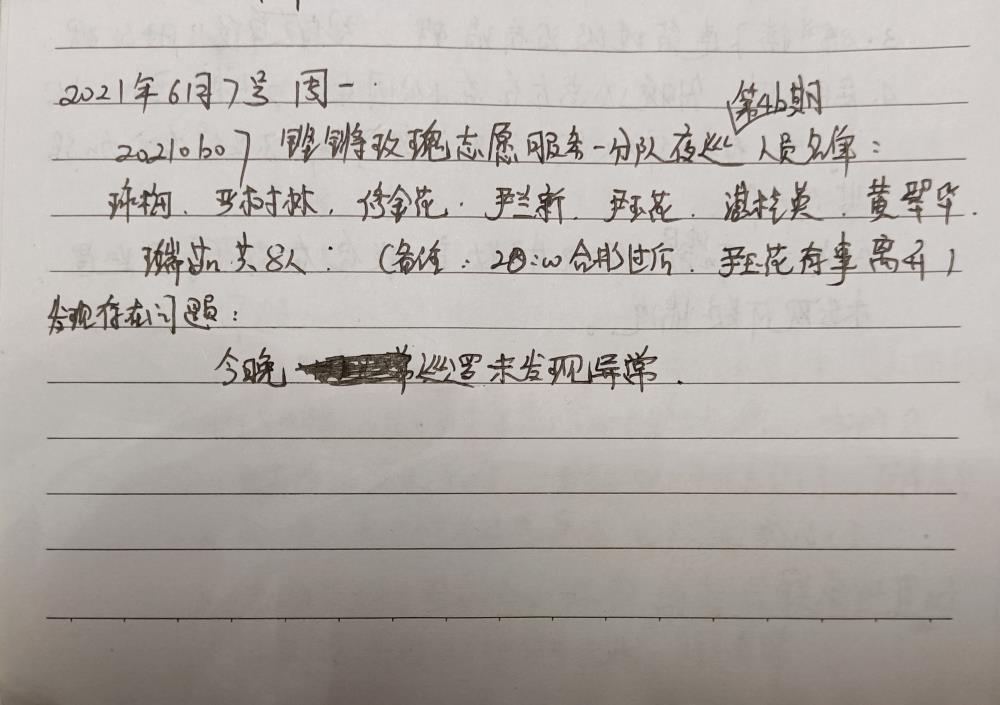 2021年6月7号 周一.
第46期
20210607 铿锵玫瑰志愿服务一分队夜巡人员名单:
珠梅. 尹树林. 佟金花. 尹兰新. 尹玉花. 湛桂英. 黄翠华.
共8人: (备注: 20:00合影过后. 尹玉花有事离开)
发现存在问题:
今晚 巡逻未发现异常.